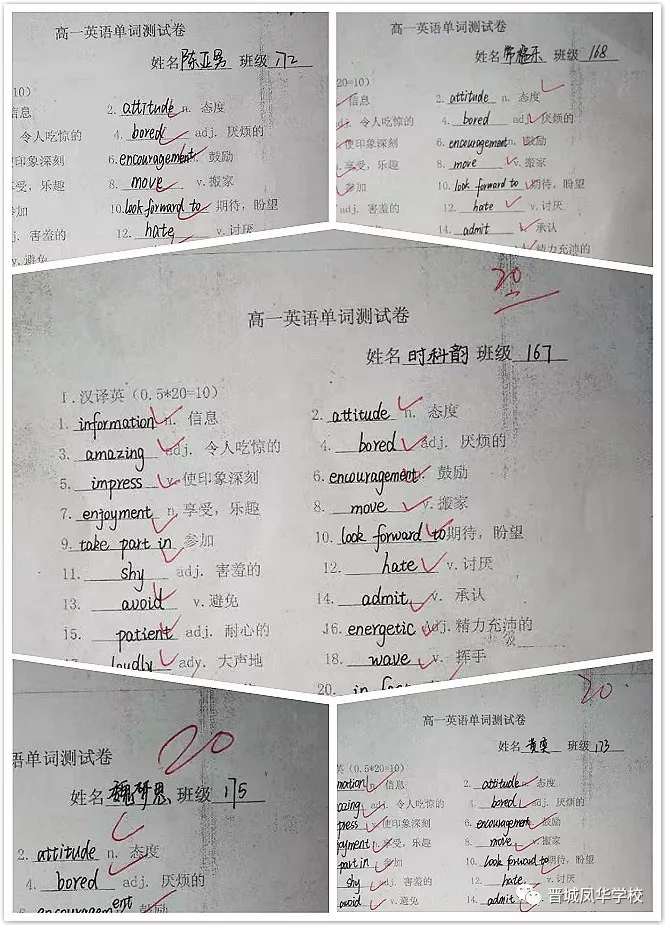 高一英语单词测试卷
姓名 陈亚男 班级 172
10)
信息 2. attitude n. 态度
令人吃惊的 4. bored adj. 厌烦的
使印象深刻 6. encouragement. 鼓励
享受，乐趣 8. move v. 搬家
参加 10. look forward to 期待，盼望
j. 害羞的 12. hate v. 讨厌
v. 避免
高一英语单词测试卷
姓名 班级 168
20=10)
信息 2. attitude n. 态度
令人吃惊的 4. bored adj. 厌烦的
使印象深刻 6. encouragement n. 鼓励
享受，乐趣 8. move v. 搬家
参加 10. look forward to 期待，盼望
adj. 害羞的 12. hate v. 讨厌
v. 避免 14. admit 承认
精力充沛的
20
高一英语单词测试卷
姓名 时科韵 班级 167
I. 汉译英（0.5*20=10）
1. information n. 信息 2. attitude n. 态度
3. amazing adj. 令人吃惊的 4. bored adj. 厌烦的
5. impress v. 使印象深刻 6. encouragement. 鼓励
7. enjoyment n. 享受，乐趣 8. move v. 搬家
9. take part in 参加 10. look forward to 期待，盼望
11. shy adj. 害羞的 12. hate v. 讨厌
13. avoid v. 避免 14. admit v. 承认
15. patient adj. 耐心的 16. energetic adj. 精力充沛的
17. loudly adv. 大声地 18. wave v. 挥手
20. in fact
20
语单词测试卷
姓名 魏梦恩 班级 175
2. attitude n. 态度
4. bored adj. 厌烦的
6. encouragement 鼓励
20
高一英语单词测试卷
姓名 黄奕 班级 173
英（0.5*20=10）
mation n. 信息 2. attitude n. 态度
azing adj. 令人吃惊的 4. bored adj. 厌烦的
press v. 使印象深刻 6. encouragement. 鼓励
joyment n. 享受，乐趣 8. move v. 搬家
part in 参加 10. look forward to 期待，盼望
shy adj. 害羞的 12. hate v. 讨厌
avoid v. 避免 14. admit
晋城凤华学校